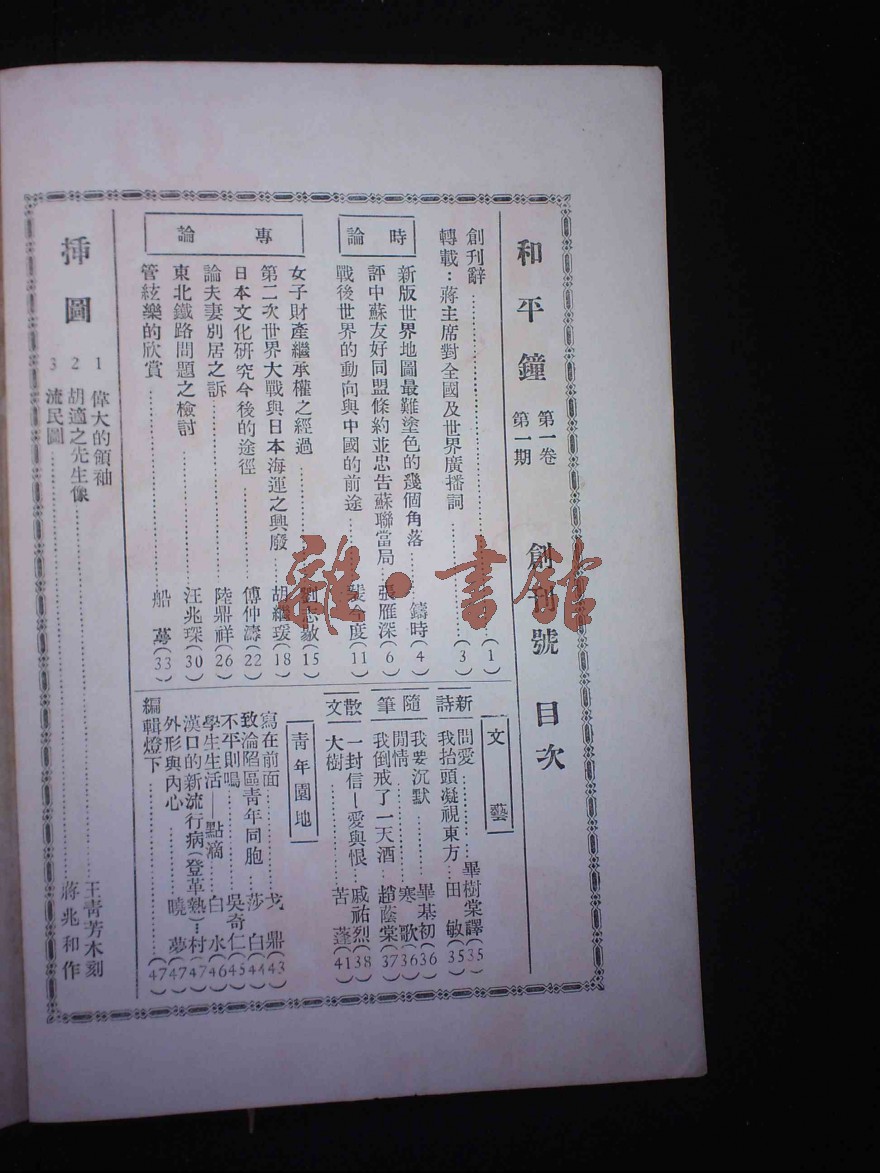 和平鐘 第一卷 第一期 創刊號 目次
創刊辭(1)
轉載：蔣主席對全國及世界廣播詞(3)
時論
新版世界地圖最難塗色的幾個角落 鑄時(4)
評中蘇友好同盟條約並忠告蘇聯當局 張雁深(6)
戰後世界的動向與中國的前途 裴今度(11)
專論
女子財產繼承權之經過 劉志敭(15)
第二次世界大戰與日本海運之興廢 胡繼瑗(18)
日本文化研究今後的途徑 傅仲濤(22)
論夫妻別居之訴 陸鼎祥(26)
東北鐵路問題之檢討 汪兆琛(30)
管絃樂的欣賞 船(33)
文藝
新詩
問愛 畢樹棠譯(35)
我抬頭凝視東方 田敏(35)
隨筆
我要沉默 畢基初(36)
閒情 寒歌(36)
我倒戒了一天酒 趙蔭棠(37)
散文
一封信—愛與恨 戚祐烈(38)
大樹 苦蓬(41)
青年園地
寫在前面 戈鼎(43)
致淪陷區青年同胞 莎白(44)
不平則鳴 吳奇仁(45)
學生生活——點滴 白水(46)
漢口的新流行病(登革熱) 村(47)
外形與內心 曉夢(47)
編輯燈下(47)
插圖
1 偉大的領袖
2 胡適之先生像 王青芳木刻
3 流民圖 蔣兆和作
雜·書館